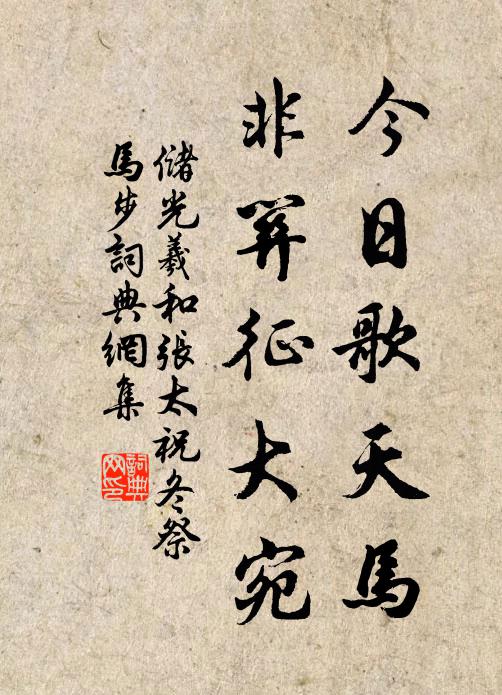 今日歌天馬
非關征大宛
儲光羲和張太祝冬祭
馬步詞典網集
詞典
网印